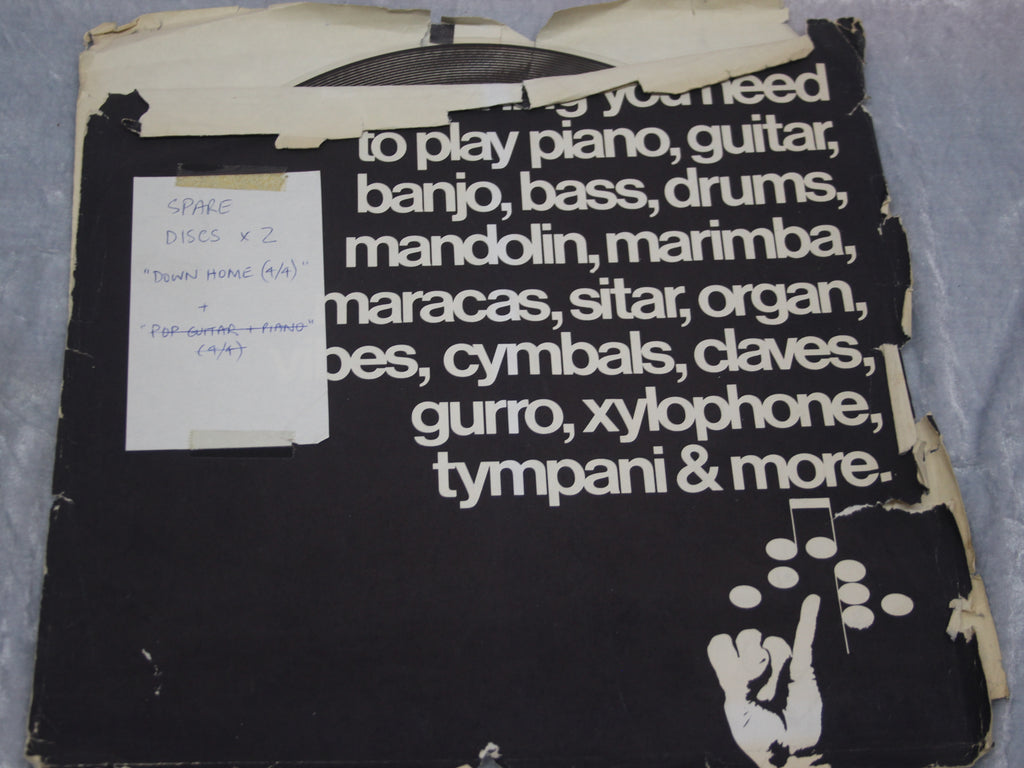 you need
to play piano, guitar,
banjo, bass, drums,
mandolin, marimba,
maracas, sitar, organ,
vibes, cymbals, claves,
gurro, xylophone,
tympani & more.
SPARE
DISCS x 2
"DOWN HOME (4/4)"
+
"POP GUITAR + PIANO"
(4/4)